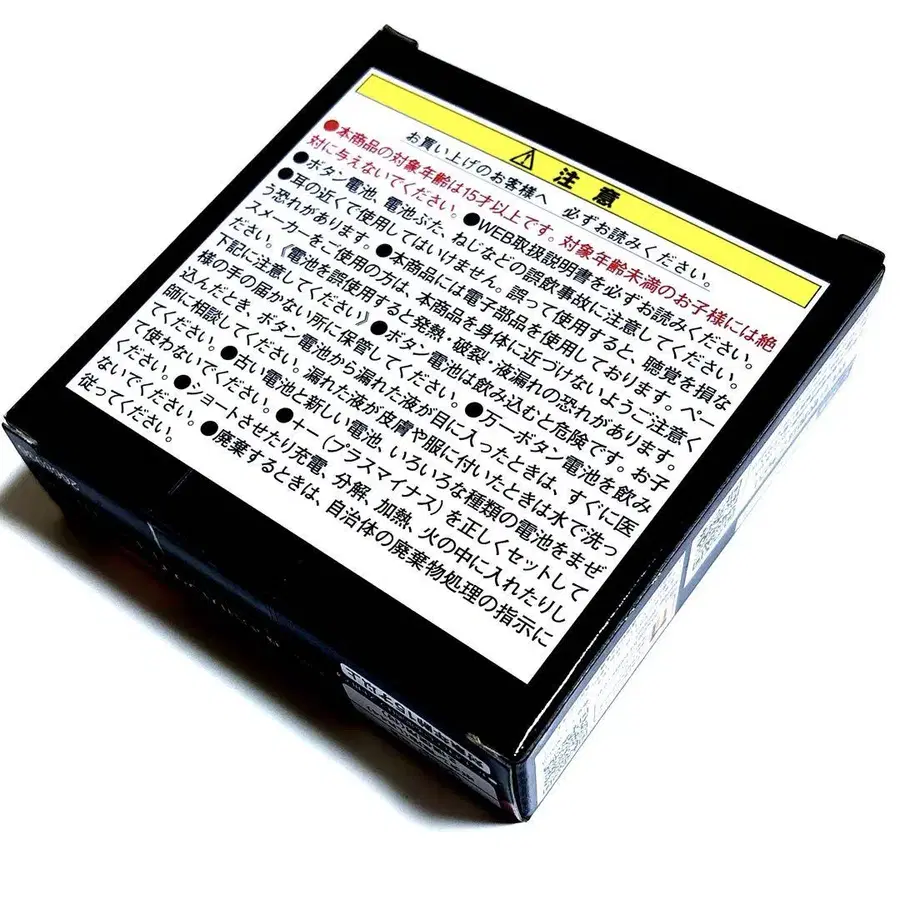 注意
お買い上げのお客様へ 必ずお読みください。
●本商品の対象年齢は15才以上です。対象年齢未満のお子様には絶
対に与えないでください。●WEB取扱説明書を必ずお読みください。
●ボタン電池、電池ぶた、ねじなどの誤飲事故に注意してください。
●耳の近くで使用してはいけません。誤って使用すると、聴覚を損な
う恐れがあります。●本商品には電子部品を使用しております。ペー
スメーカーをご使用の方は、本商品を身体に近づけないようご注意く
ださい。《電池を誤使用すると発熱、破裂、液漏れの恐れがあります。
下記に注意してください》●ボタン電池は飲み込むと危険です。お子
様の手の届かない所に保管してください。●万一ボタン電池を飲み
込んだとき、ボタン電池から漏れた液が目に入ったときは、すぐに医
師に相談してください。漏れた液が皮膚や服に付いたときは水で洗っ
てください。●古い電池と新しい電池、いろいろな種類の電池をまぜ
て使わないでください。●+-(プラスマイナス)を正しくセットして
ください。●ショートさせたり充電、分解、加熱、火の中に入れたりし
ないでください。●廃棄するときは、自治体の廃棄物処理の指示に
従ってください。